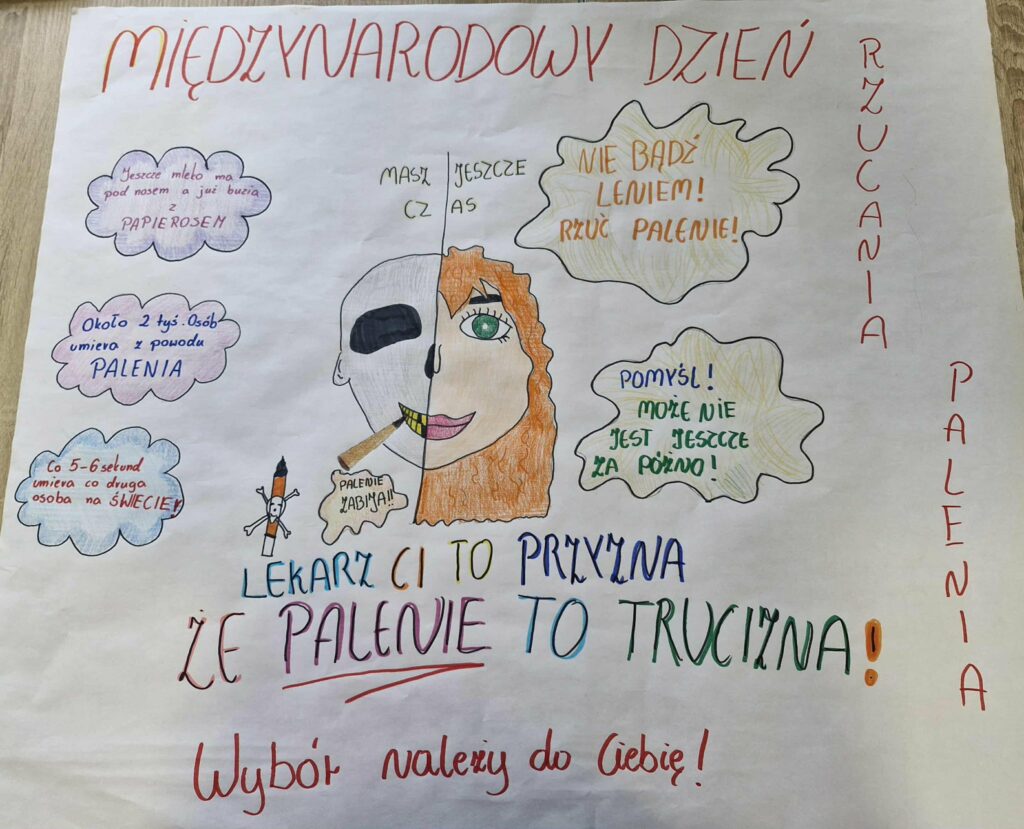 MIĘDZYNARODOWY DZIEŃ
RZUCANIA
PALENIA
Jeszcze mleko ma
pod nosem a już buzia
z
PAPIEROSEM
MASZ JESZCZE
CZAS
NIE BĄDŹ
LENIEM!
RZUĆ PALENIE!
Około 2 tyś. Osób
umiera z powodu
PALENIA
POMYŚL!
MOŻE NIE
JEST JESZCZE
ZA PÓŹNO!
Co 5-6 sekund
umiera co druga
osoba na ŚWIECIE!
PALENIE
ZABIJA!!
LEKARZ CI TO PRZYZNA
ŻE PALENIE TO TRUCIZNA!
Wybór należy do Ciebię!